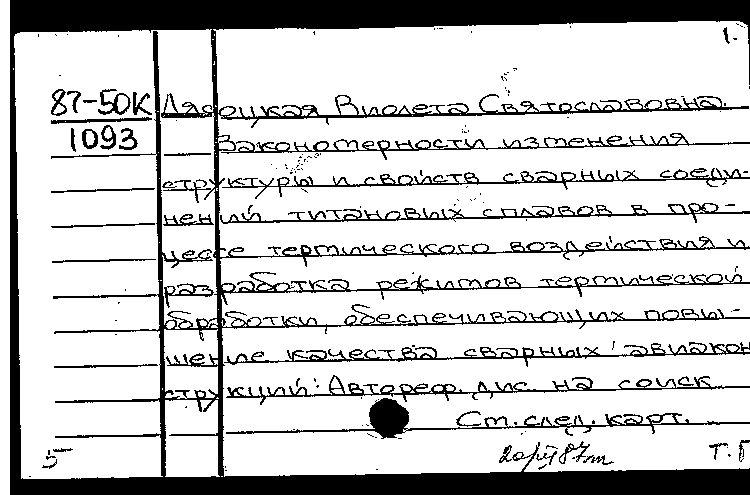 1.
87-50К Лясоцкая, Виолета Святославовна.
1093 Закономерности изменения
структуры и свойств сварных соеди-
нений титановых сплавов в про-
цессе термического воздействия и
разработка режимов термической
обработки, обеспечивающих повы-
шение качества сварных авиакон
струкций: Автореф. дис. на соиск
Ст. след. карт.
5
Т.